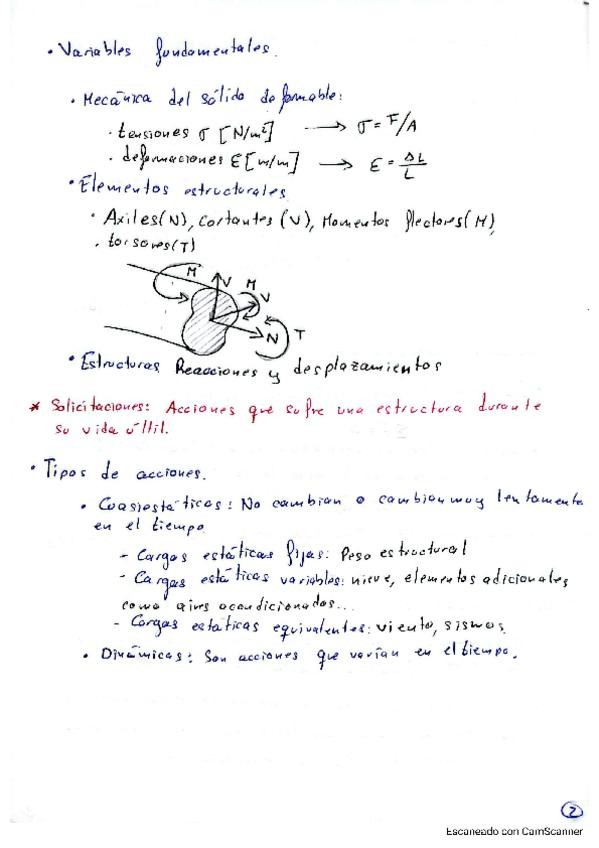 • Variables fundamentales.
• Mecánica del sólido deformable:
• tensiones σ [N/m²] → σ = F/A
• deformaciones ε [m/m] → ε = ΔL/L
• Elementos estructurales
• Axiles (N), Cortantes (V), Momentos flectores (M),
• torsores (T)
M V M V
N T
• Estructuras Reacciones y desplazamientos
* Solicitaciones: Acciones que sufre una estructura durante
su vida útil.
• Tipos de acciones.
• Cuasiestáticas: No cambian o cambian muy lentamente
en el tiempo
- Cargas estáticas fijas: Peso estructural
- Cargas estáticas variables: nieve, elementos adicionales
como aires acondicionados...
- Cargas estáticas equivalentes: viento, sismos
• Dinámicas: Son acciones que varían en el tiempo.
2
Escaneado con CamScanner